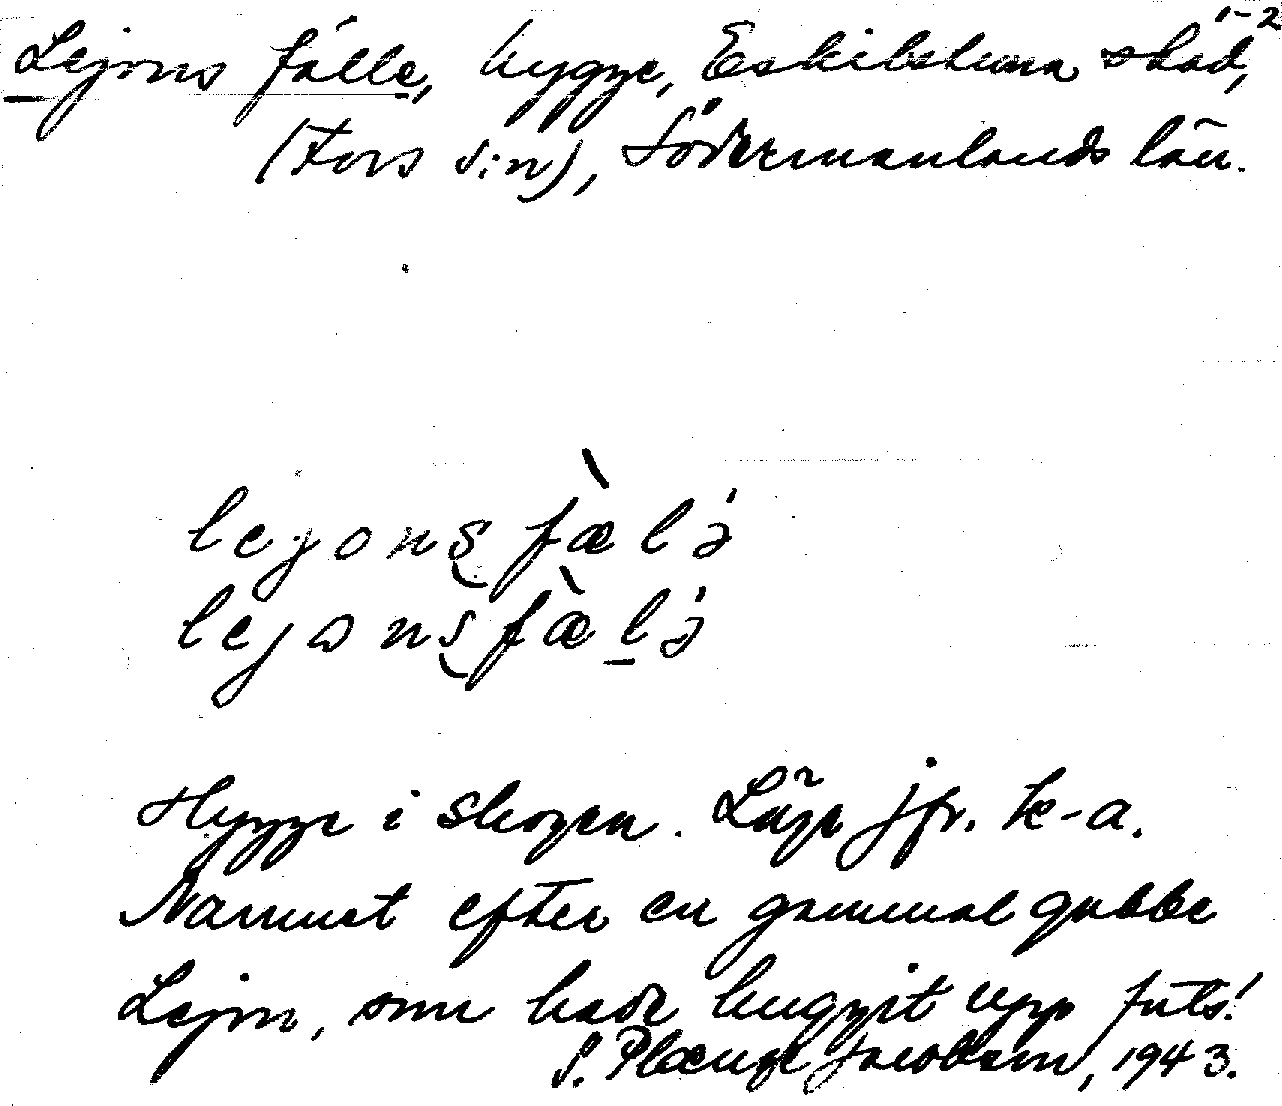 Lejons fälle, hygge, Eskilstuna stad, 1-2
(Fors s:n), Södermanlands län.
lejonsfæ̀lə
lejonsfæ̀lə
Hygge i skogen. Läge jfr. k-a.
Namnet efter en gammal gubbe
Lejon, som hade huggit upp
S. Plænge Jacobson, 1943.